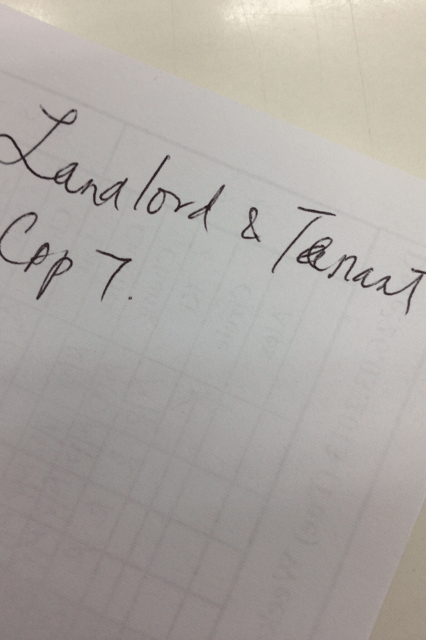 Landlord & Tenant
Cap 7.